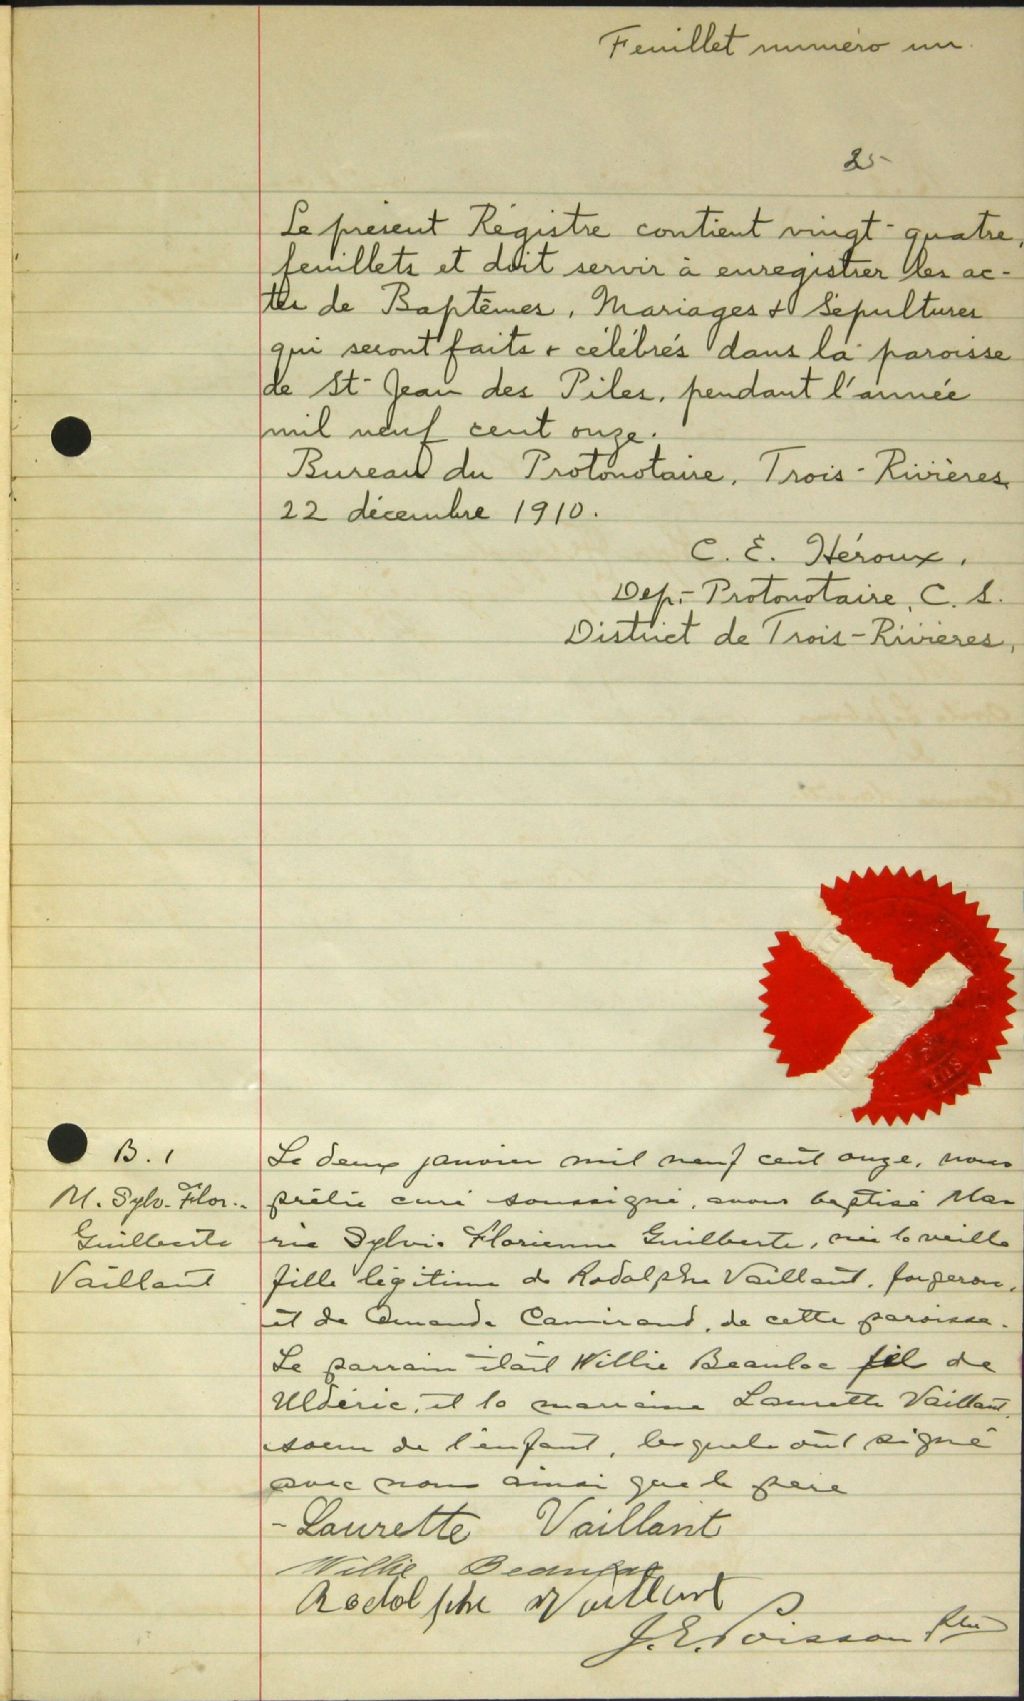 Feuillet numéro un.
25
Le présent Régistre contient vingt-quatre
feuillets et doit servir à enregistrer les ac-
tes de Baptêmes, Mariages & Sépultures
qui seront faits & célébrés dans la paroisse
de St-Jean des Piles, pendant l'année
mil neuf cent onze.
Bureau du Protonotaire, Trois-Rivières
22 décembre 1910.
C. E. Héroux,
Dep.-Protonotaire, C. S.
District de Trois-Rivières,
B. 1
M. Sylv. Flor..
Guilberte
Vaillant
Le deux janvier mil neuf cent onze, nous
prêtre curé soussigné, avons baptisé Ma
rie Sylvia Florienne Guilberte, née la veille
fille légitime de Rodolphe Vaillant, forgeron,
et de Amanda Camirand, de cette paroisse.
Le parrain était Willie Beaulac fils de
Uldéric, et la marraine Laurette Vaillant,
soeur de l'enfant, lesquels ont signé
avec nous ainsi que le père
- Laurette Vaillant
Willie Beaulac
Rodolphe Vaillant
J. E. Poisson Ptre